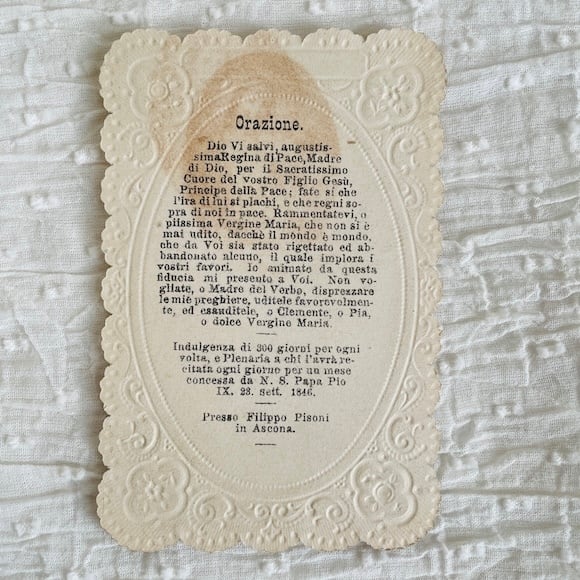 Orazione.
Dio Vi salvi, augustis-
sima Regina di Pace, Madre
di Dio, per il Sacratissimo
Cuore del vostro Figlio Gesù,
Principe della Pace; fate sì che
l'ira di lui si plachi, e che regni so-
pra di noi in pace. Rammentatevi, o
piissima Vergine Maria, che non si è
mai udito, dacchè il mondo è mondo,
che da Voi sia stato rigettato ed ab-
bandonato alcuno, il quale implora i
vostri favori. Io animato da questa
fiducia mi presento a Voi. Non vo-
gliate, o Madre del Verbo, disprezzare
le mie preghiere, uditele favorevolmen-
te, ed esauditele, o Clemente, o Pia,
o dolce Vergine Maria.
Indulgenza di 300 giorni per ogni
volta, e Plenaria a chi l'avrà re-
citata ogni giorno per un mese
concessa da N. S. Papa Pio
IX. 23. sett. 1846.
Presso Filippo Pisoni
in Ascona.